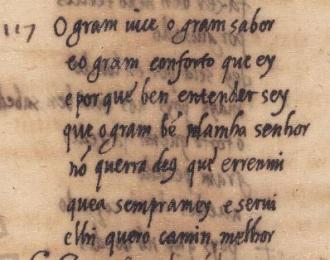 117 O gram uiçe o gram sabor
eo gram conforto que ey
e por que ben entender sey
que o gram bẽ da mha senhor
nõ querra deg que errenmi
quea sempramey e serui
elhi quero camin melhor